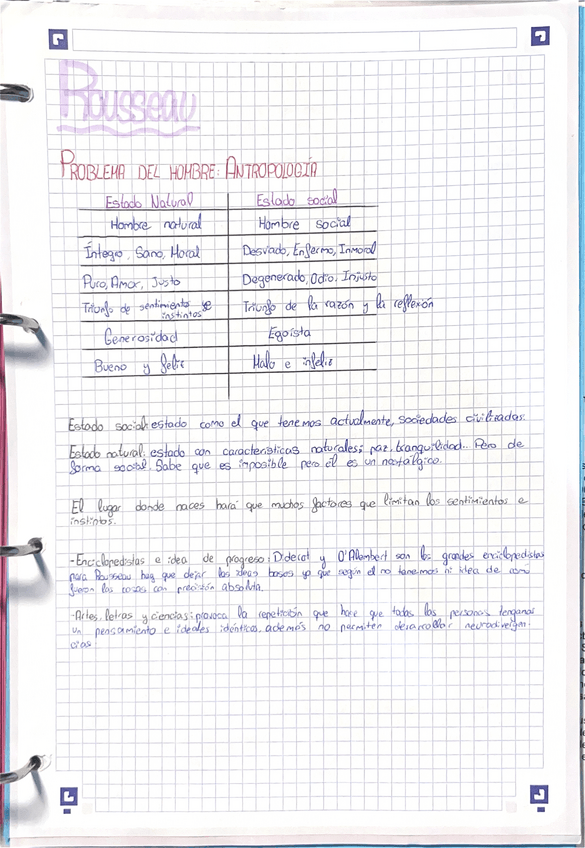 Rousseau
PROBLEMA DEL HOMBRE: ANTROPOLOGÍA
Estado Natural Estado social
Hombre natural Hombre social
Íntegro, Sano, Moral Desviado, Enfermo, Inmoral
Puro, Amor, Justo Degenerado, Odio, Injusto
Triunfo de sentimiento e instintos Triunfo de la razón y la reflexión
Generosidad Egoísta
Bueno y feliz Malo e infeliz
Estado social: estado como el que tenemos actualmente, sociedades civilizadas.
Estado natural: estado con características naturales; paz, tranquilidad... Pero de
forma social. Sabe que es imposible pero él es un nostálgico.
El lugar donde naces hará que muchos factores que limitan los sentimientos e
instintos.
-Enciclopedistas e idea de progreso: Diderot y D'Alembert son los grandes enciclopedistas
para Rousseau hay que dejar las ideas bases ya que según el no tenemos ni idea de como
fueron las cosas con precisión absoluta.
-Artes, letras y ciencias: provoca la repetición que hace que todas las personas tengamos
un pensamiento e ideales idénticos, además no permiten desarrollar neurodivergen-
cias.